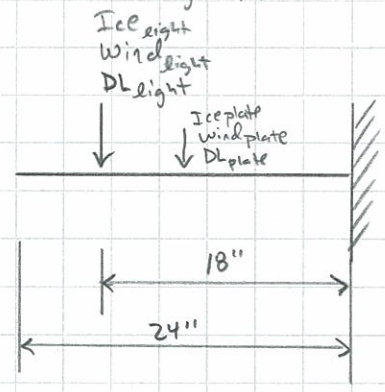 Ice light
Wind light
DL light
Ice plate
Wind plate
DL plate
18"
24"